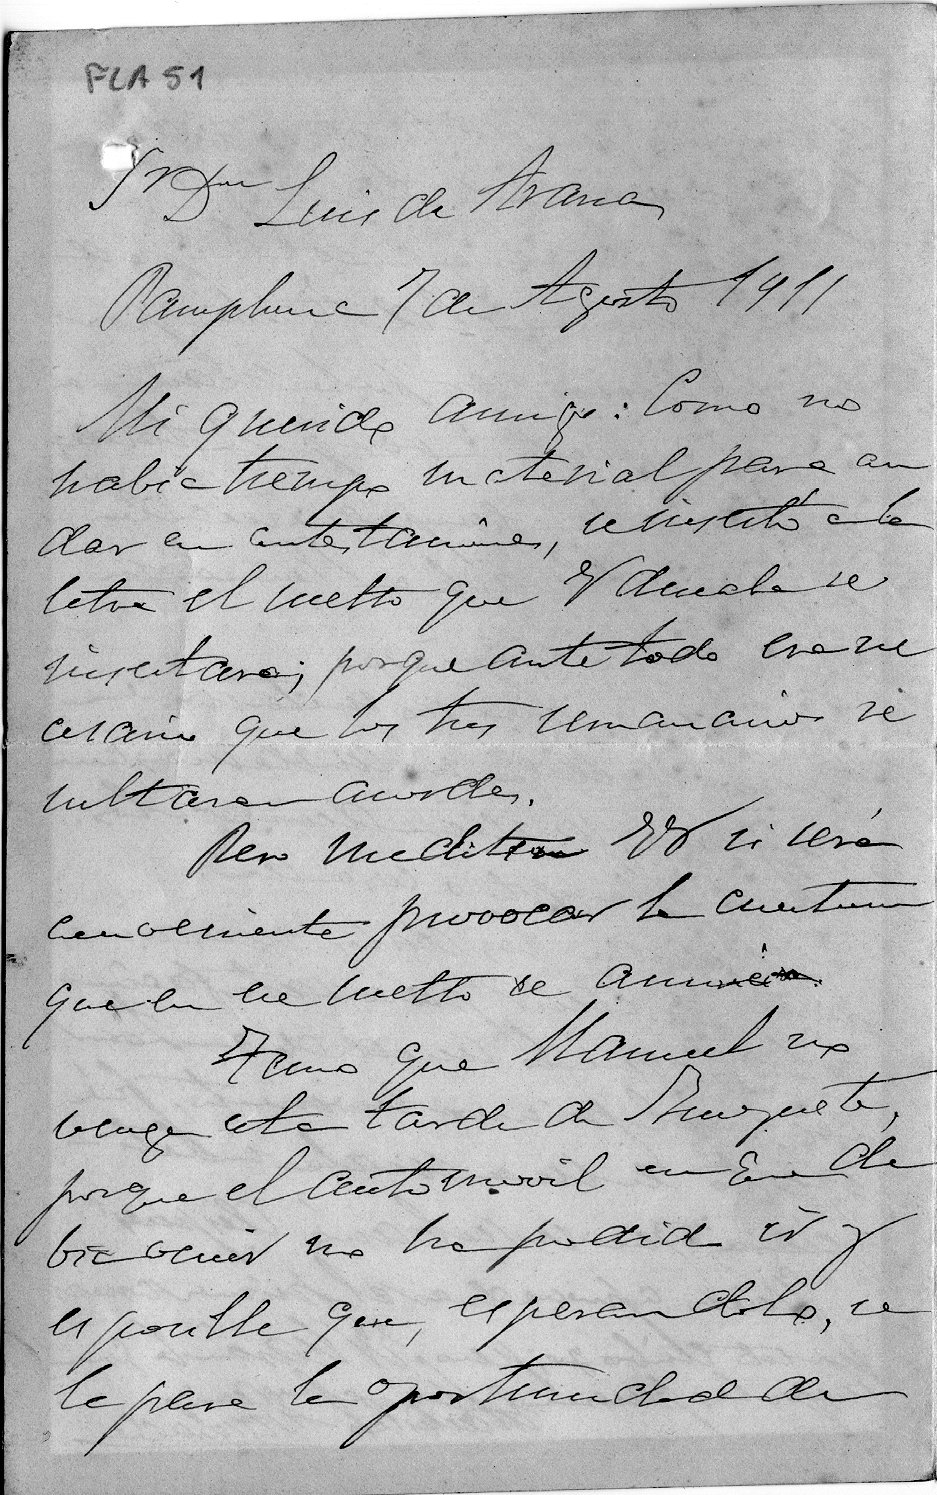 FLA 51
Sr Dn Luis de Arana
Pamplona 7 de Agosto 1911
Mi querido amigo: Como no
había tiempo material para an
dar en contestaciones, se insertó a la
letra el suelto que V deseaba se
insertara; porque ante todo era ne
cesario que los tres semanarios re
sultaran acordes.
Pero mediten VV si será
conveniente provocar la cuestion
que en ese suelto se anuncia.
Temo que Manuel no
venga esta tarde de Burguete,
porque el automóvil en que de
bía venir no ha podido ir y
es posible que, esperandolo, se
le pase la oportunidad de